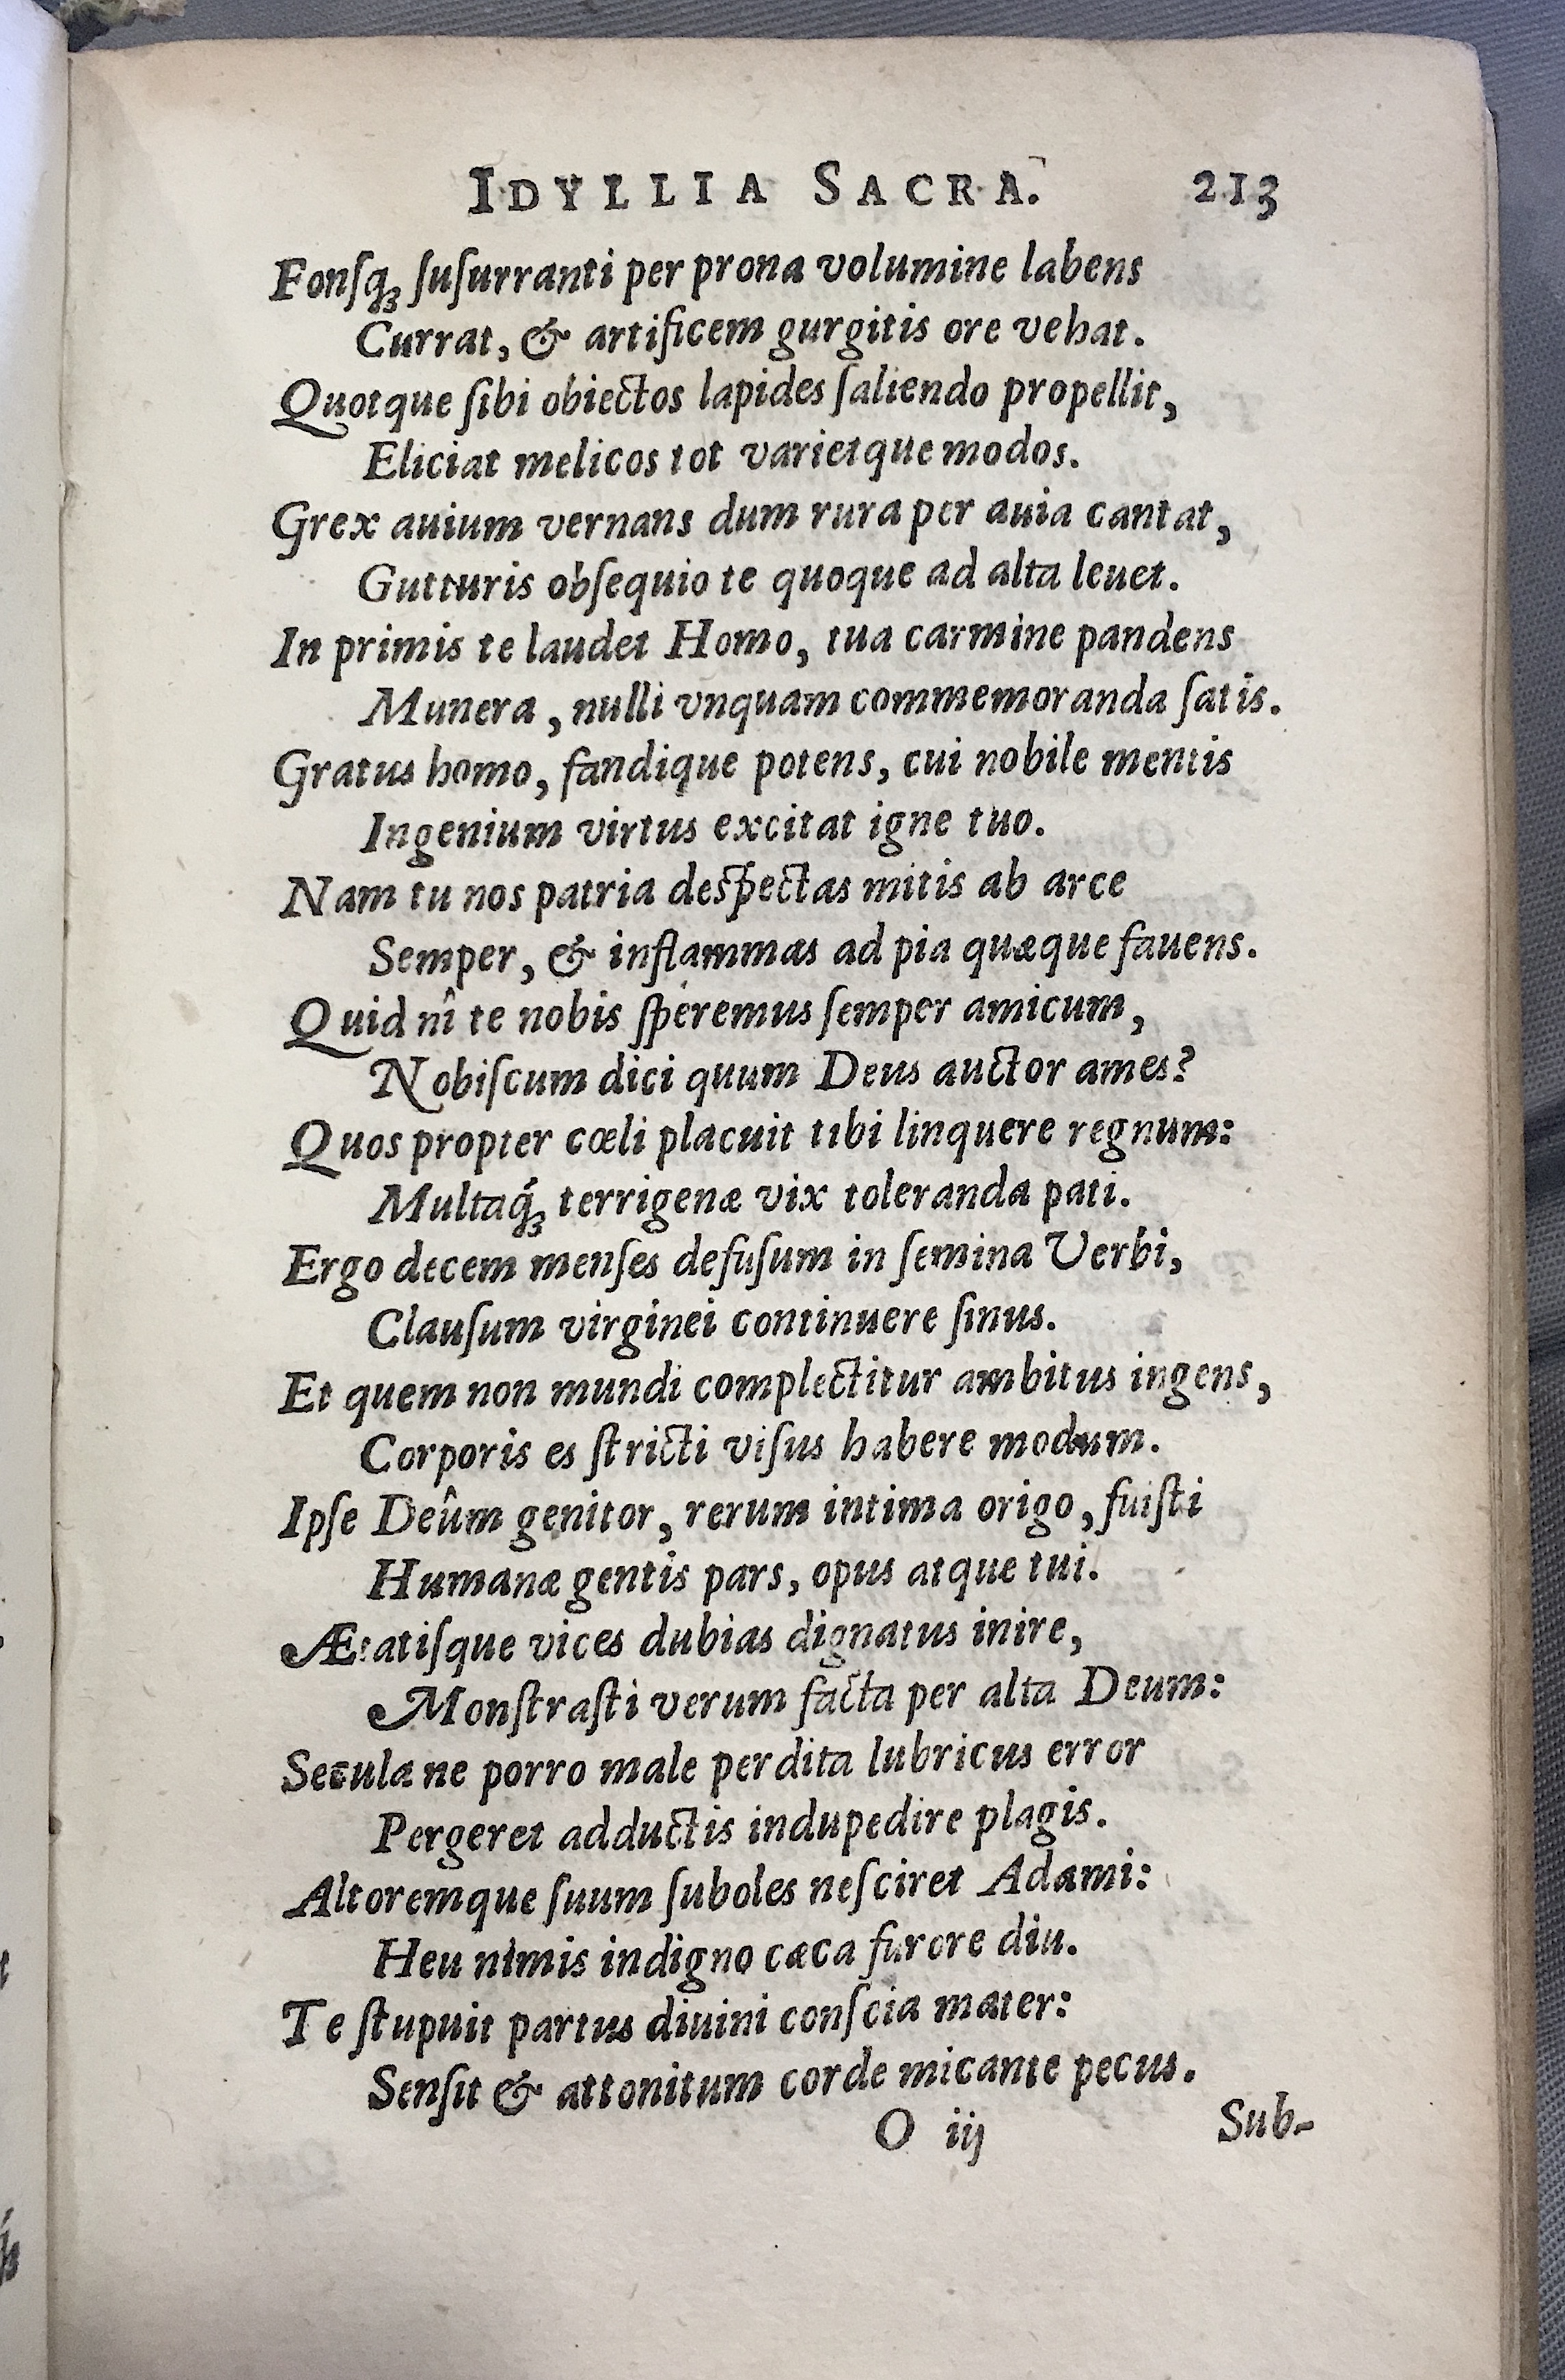 IDYLLIA SACRA. 213
Fonsq́ꝫ ſuſurranti per prona volumine labens
Currat, & artificem gurgitis ore vehat.
Quotque ſibi obiectos lapides ſaliendo propellit,
Eliciat melicos tot varietque modos.
Grex auium vernans dum rura per auia cantat,
Gutturis obſequio te quoque ad alta leuet.
In primis te laudet Homo, tua carmine pandens
Munera, nulli vnquam commemoranda ſatis.
Gratus homo, fandique potens, cui nobile mentis
Ingenium virtus excitat igne tuo.
Nam tu nos patria deſpectas mitis ab arce
Semper, & inflammas ad pia quæque fauens.
Quid nî te nobis ſperemus ſemper amicum,
Nobiſcum dici quum Deus auctor ames?
Quos propter cœli placuit tibi linquere regnum:
Multaq́ꝫ terrigenæ vix toleranda pati.
Ergo decem menſes defuſum in ſemina Verbi,
Clauſum virginei continuere ſinus.
Et quem non mundi complectitur ambitus ingens,
Corporis es ſtricti viſus habere modum.
Ipſe Deûm genitor, rerum intima origo, fuiſti
Humanæ gentis pars, opus atque tui.
Ætatiſque vices dubias dignatus inire,
Monſtraſti verum facta per alta Deum:
Secula ne porro male perdita lubricus error
Pergeret adductis indupedire plagis.
Altoremque ſuum ſuboles neſciret Adami:
Heu nimis indigno cæca furore diu.
Te ſtupuit partus diuini conſcia mater:
Senſit & attonitum corde micante pecus.
O iij Sub-